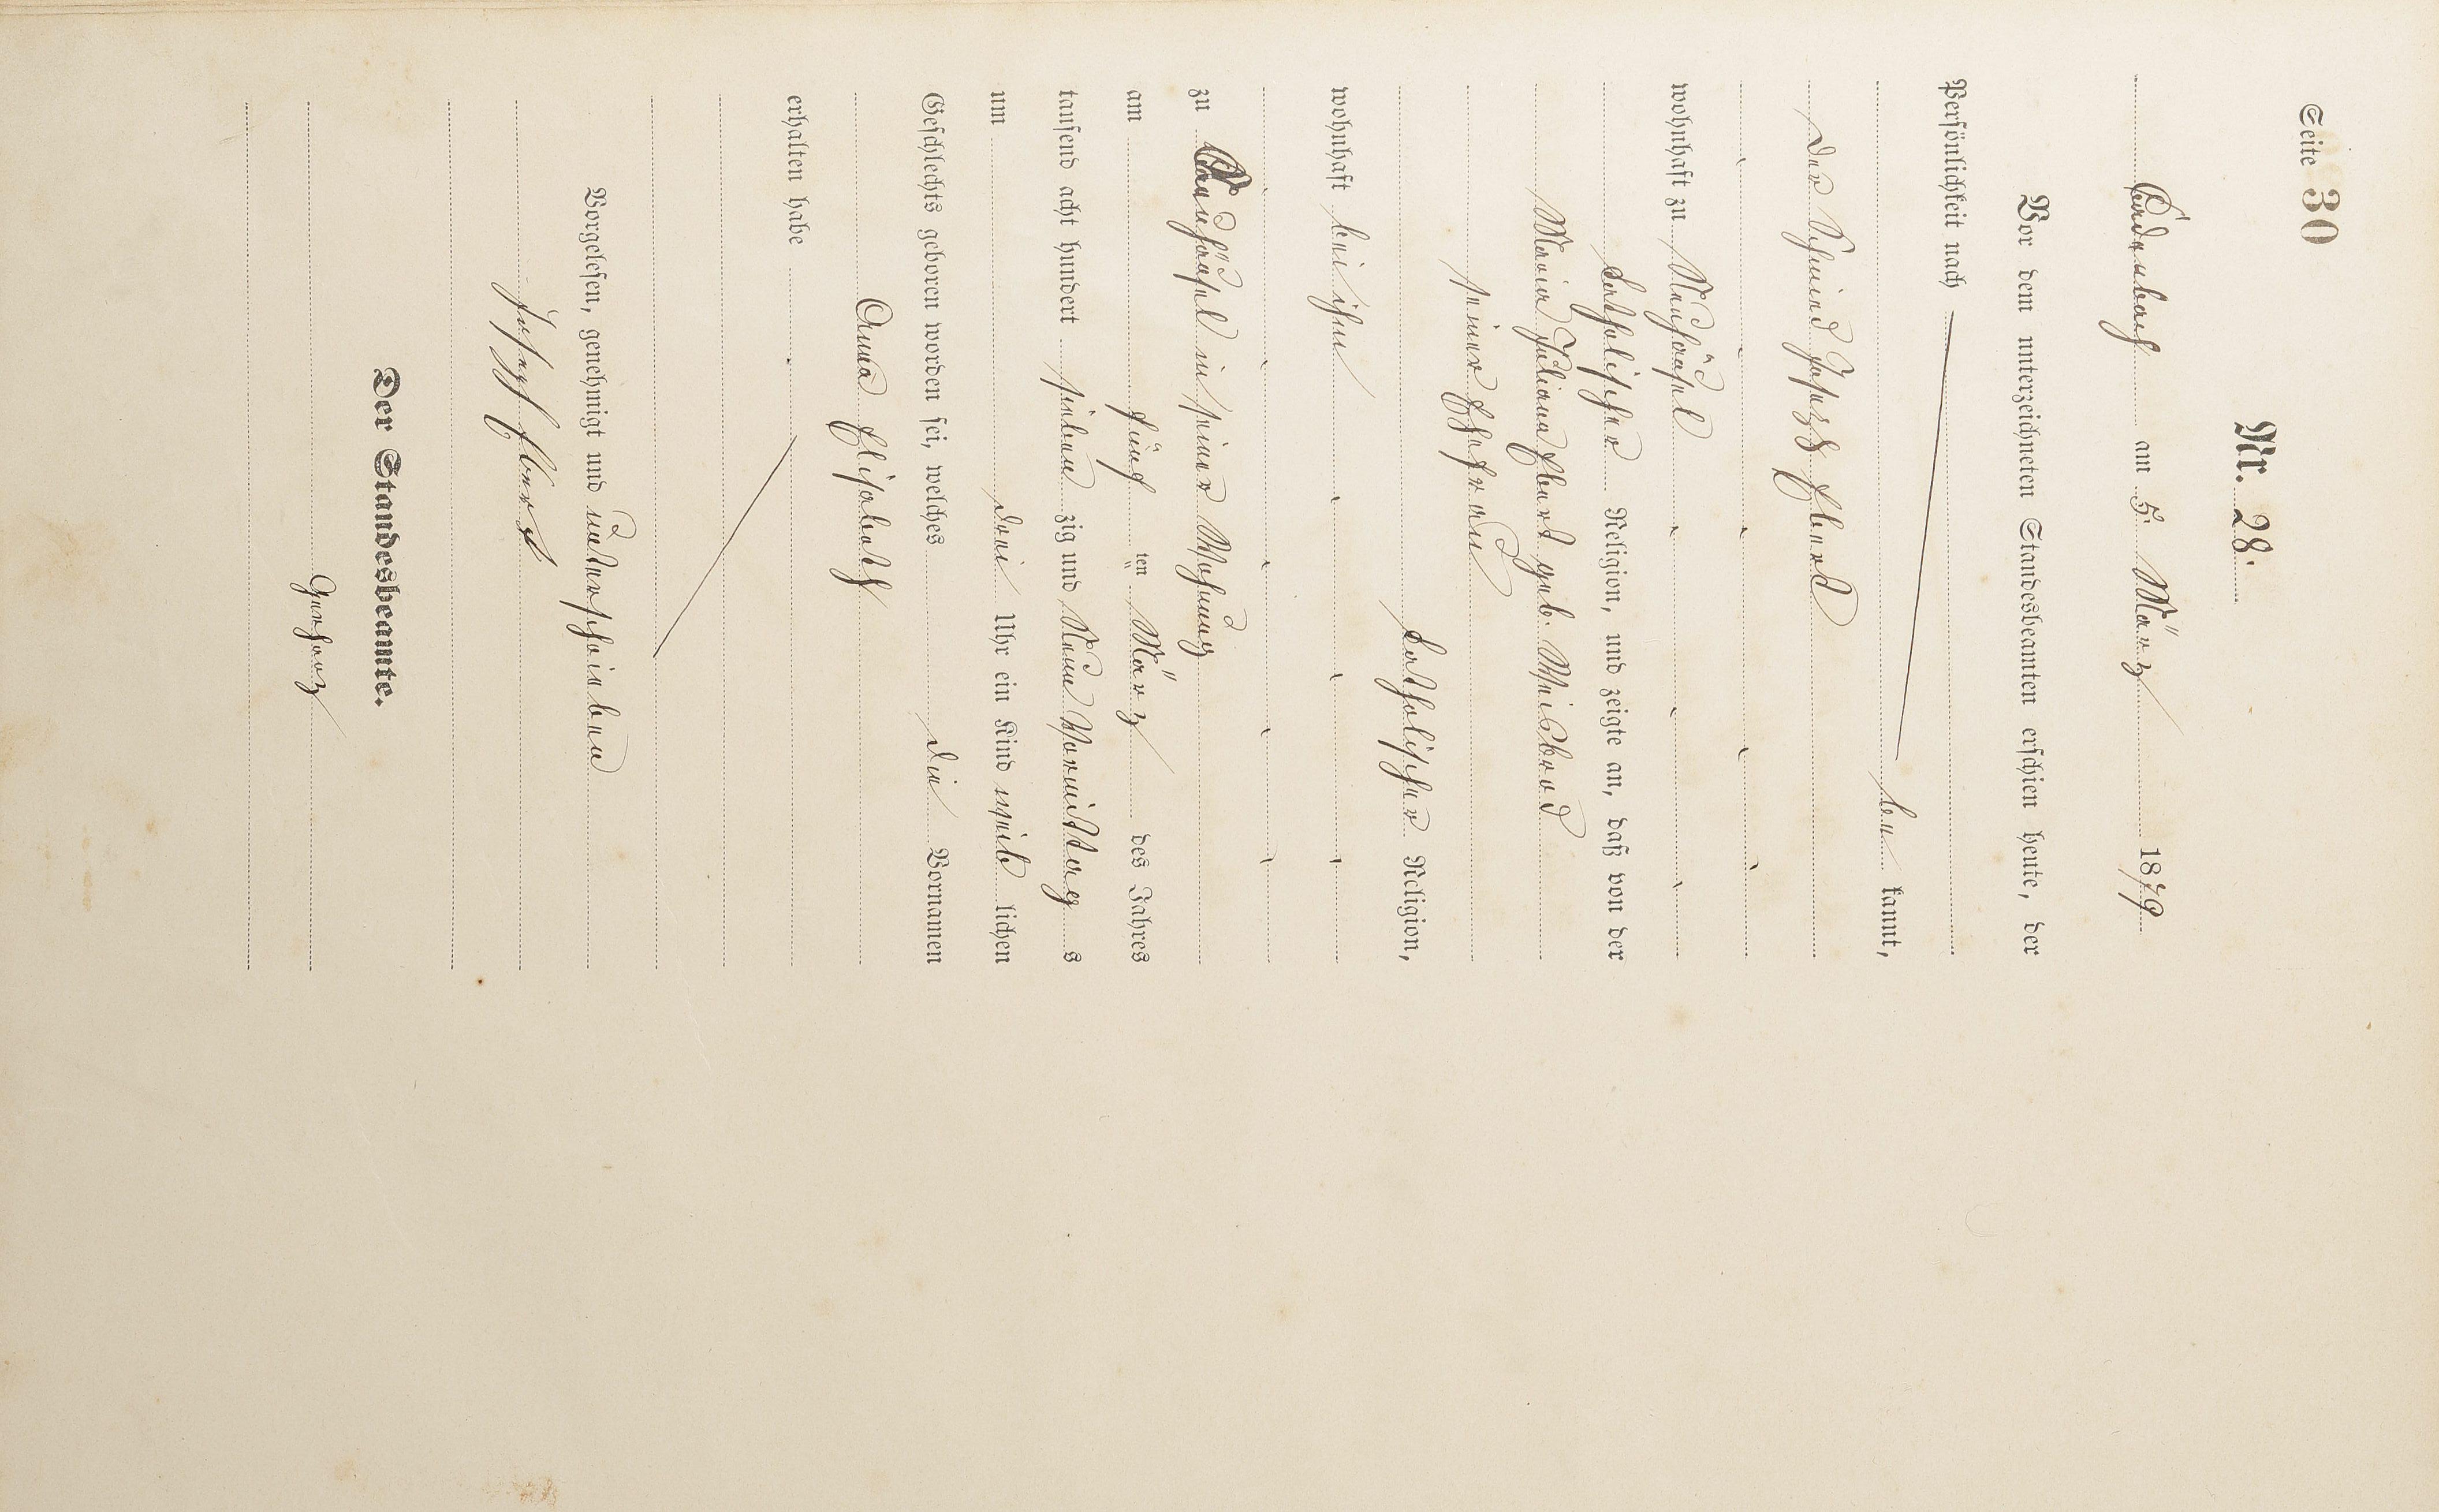 Seite 30
Nr. 28.
Cadenbach am 5. März 1879
Vor dem unterzeichneten Standesbeamten erschien heute, der
Persönlichkeit nach
be kannt,
der Schmied Joseph Ebert
wohnhaft zu Neuhäusel
katholischer Religion, und zeigte an, daß von der
Maria Juliana Ebert geb. Weisbrod
seiner Ehefrau
katholischer Religion,
wohnhaft bei ihm
zu Neuhäusel in seiner Wohnung
am fünf ten März des Jahres
tausend acht hundert sieben zig und Neun Vormittag s
um drei Uhr ein Kind weib lichen
Geschlechts geboren worden sei, welches die Vornamen
Anna Elisabeth
erhalten habe
Vorgelesen, genehmigt und unterschrieben
Joseph Ebert
Der Standesbeamte.